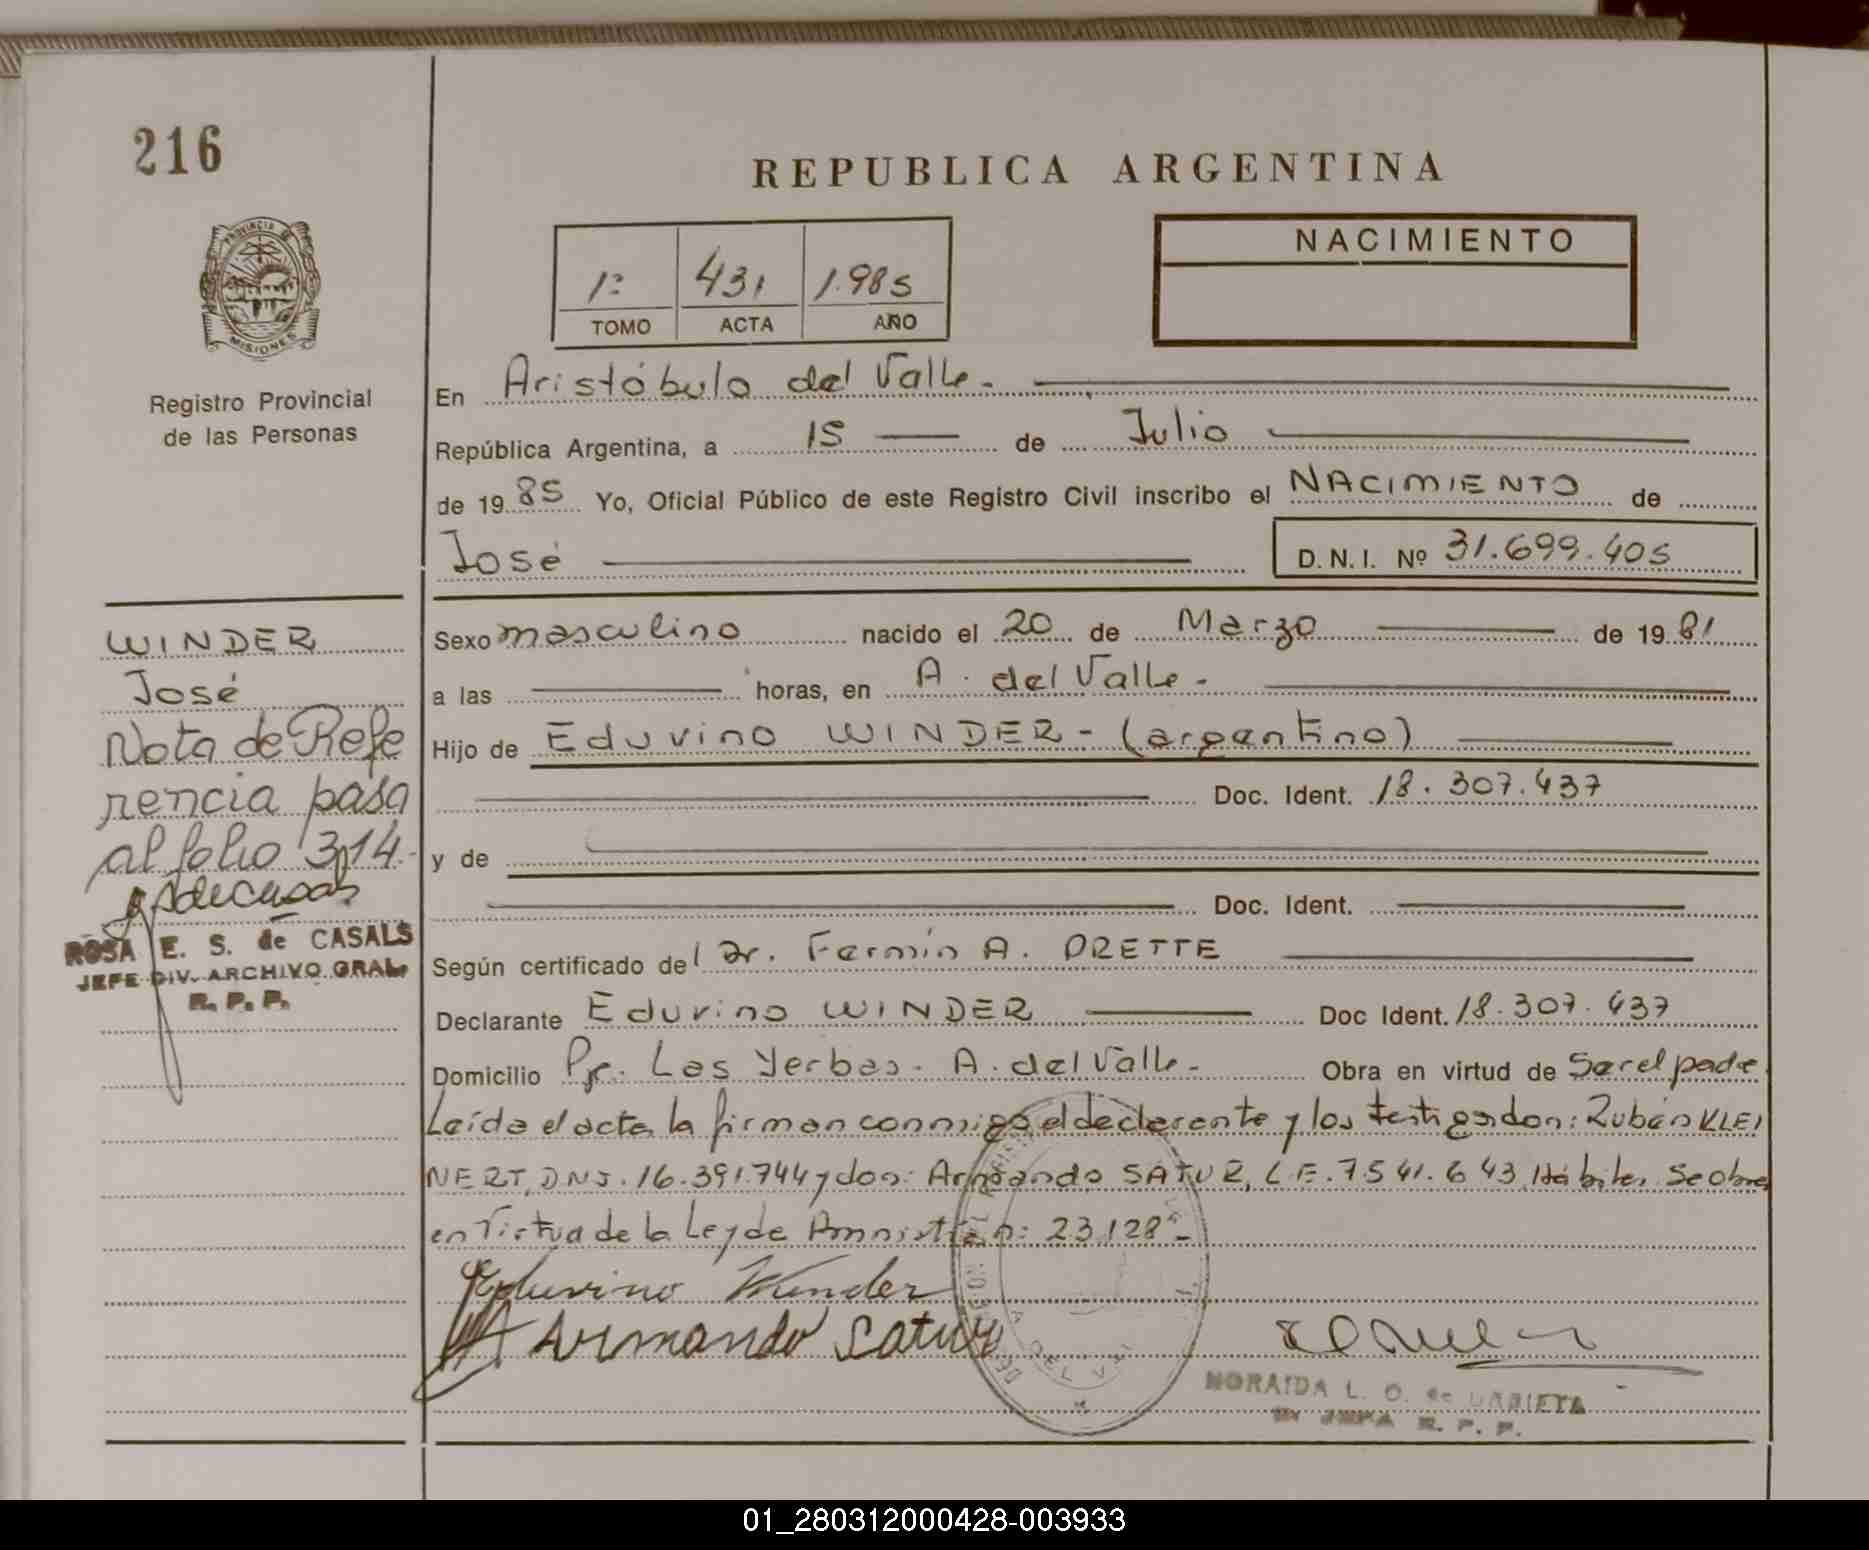 216
REPUBLICA ARGENTINA
NACIMIENTO
1º 431 1.985
TOMO ACTA AÑO
PROVINCIA DE
MISIONES
Registro Provincial
de las Personas
En Aristóbulo del Valle.
República Argentina, a 15 de Julio
de 1985 Yo, Oficial Público de este Registro Civil inscribo el NACIMIENTO de
José D.N.I. Nº 31.699.405
WINDER
José
Nota de Refe
rencia pasa
al folio 314.-
ROSA E. S. de CASALS
JEFE DIV. ARCHIVO GRAL.
R. P. P.
Sexo masculino nacido el 20 de Marzo de 1981
a las horas, en A. del Valle-
Hijo de Eduvino WINDER - (argentino)
Doc. Ident. 18.307.437
y de
Doc. Ident.
Según certificado del Dr. Fermín A. ORETTE
Declarante Eduvino WINDER Doc Ident. 18.307.437
Domicilio Pje. Las Yerbas - A. del Valle - Obra en virtud de Ser el padre.
Leída el acta, la firman conmigo el declarante y los testigos don: Rubén KLEI
NERT, DNI. 16.391.744 y don: Armando SATUR, L.E. 7.541.643, Hábiles. Se obra
en Virtud de la Ley de Amnistía n: 23.128 -
Eduvino Winder
Armando Satur
NORAIDA L. O. de URRIETA
R. P. P.
01_280312000428-003933